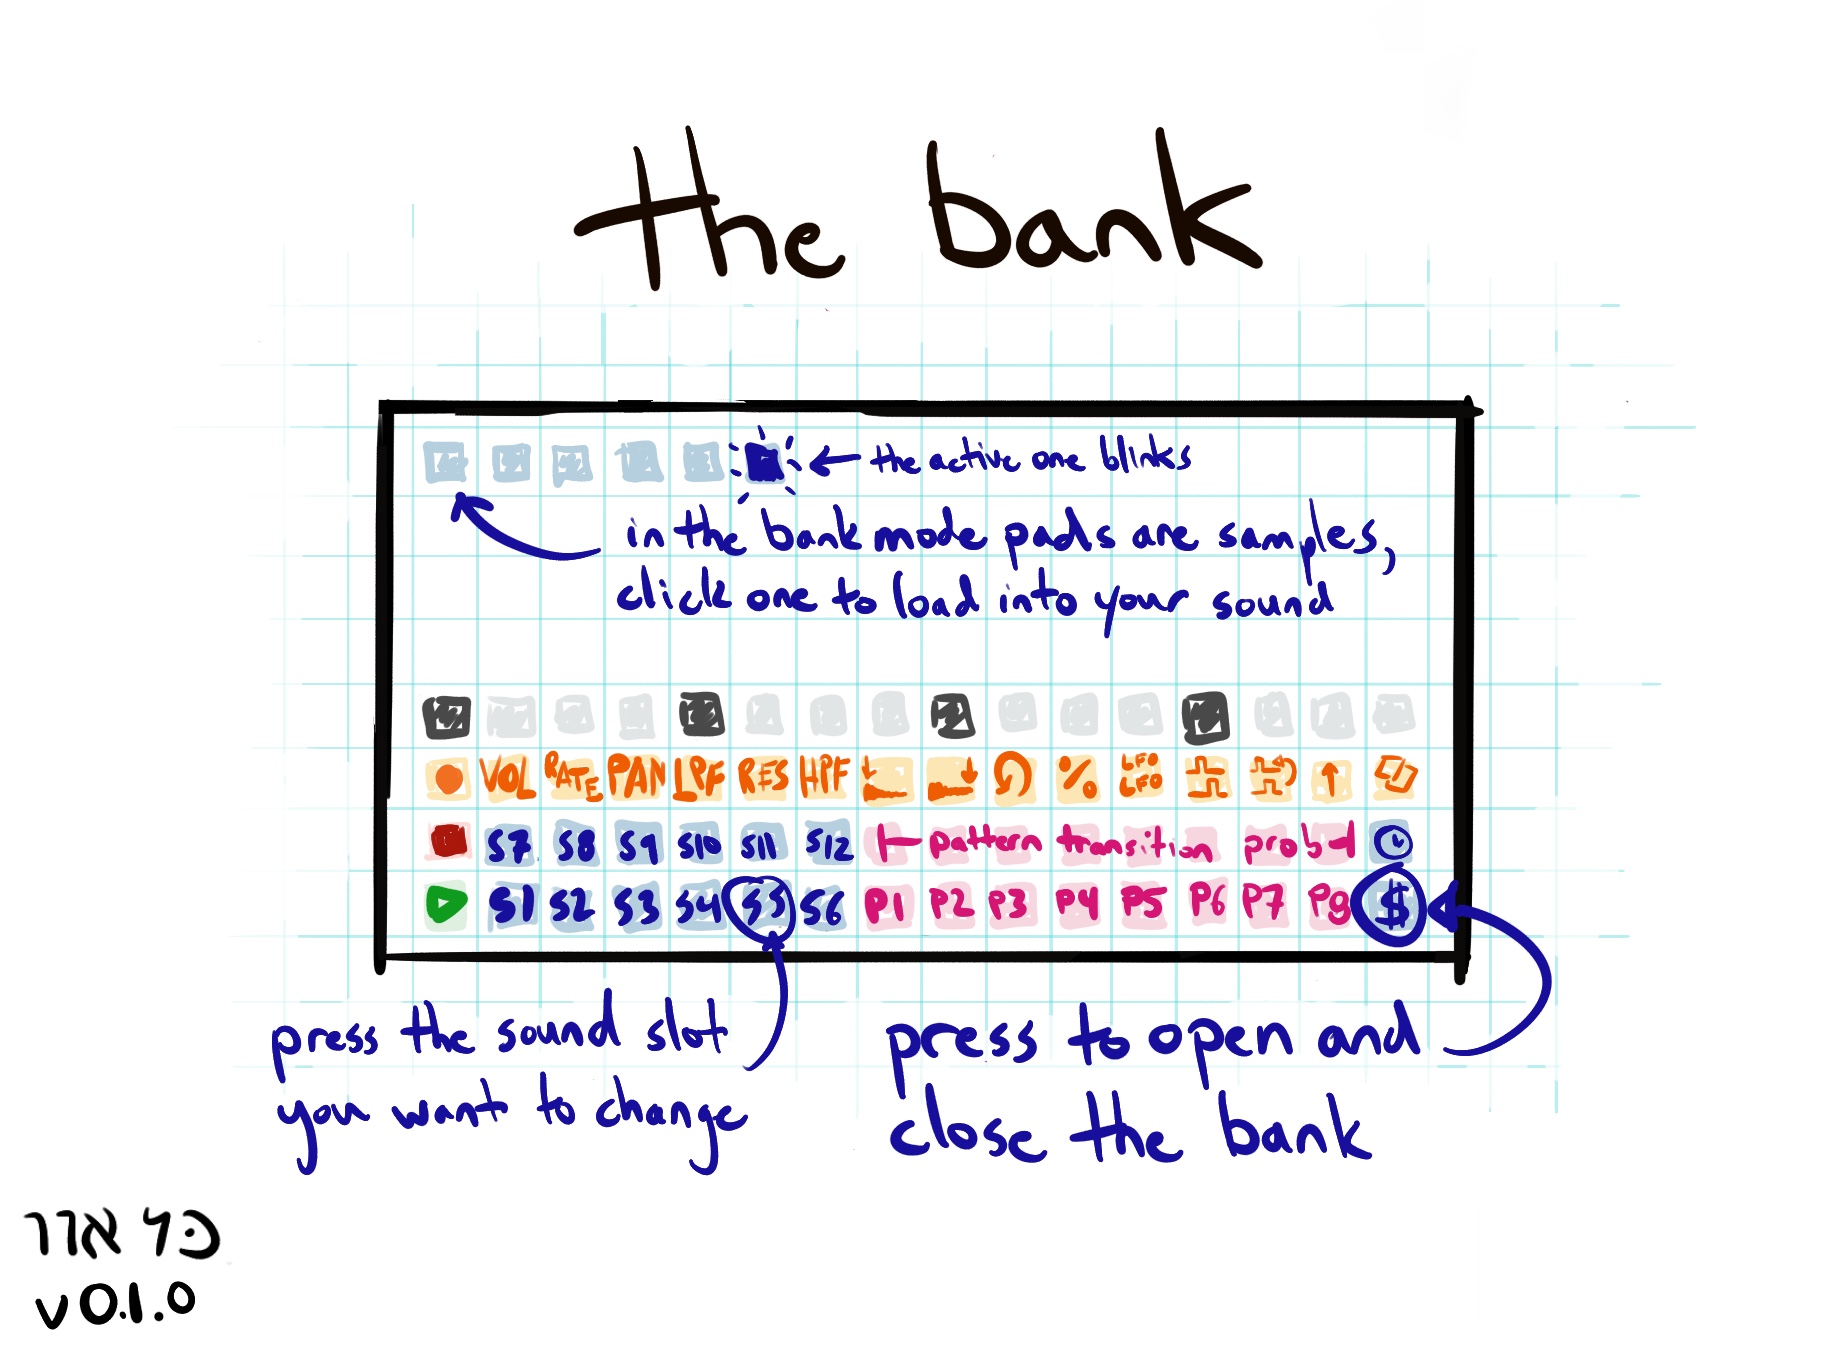 the bank
the active one blinks
in the bank mode pads are samples,
click one to load into your sound
VOL RATE PAN LPF RES HPF % LFO LFO
S7 S8 S9 S10 S11 S12 pattern transition prob
S1 S2 S3 S4 S5 S6 P1 P2 P3 P4 P5 P6 P7 P8 $
press the sound slot
you want to change
press to open and
close the bank
כל אדר
v0.1.0